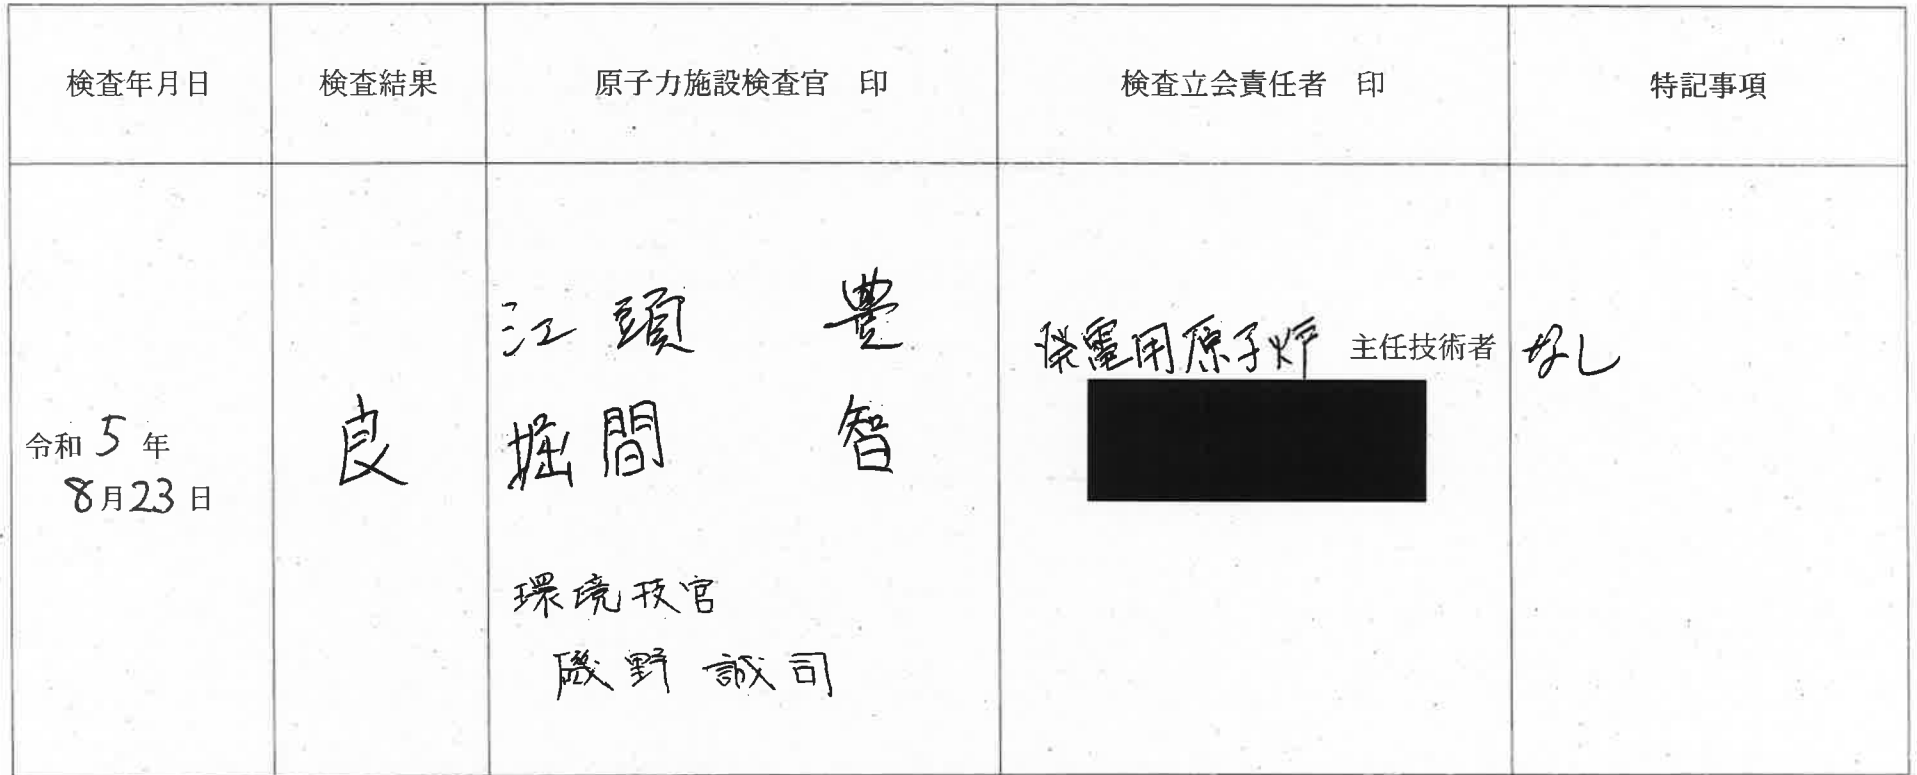 検査年月日 検査結果 原子力施設検査官 印 検査立会責任者 印 特記事項
令和5年
8月23日
良
江頭 豊
堀間 智
環境技官
磯野 誠司
発電用原子炉 主任技術者
なし